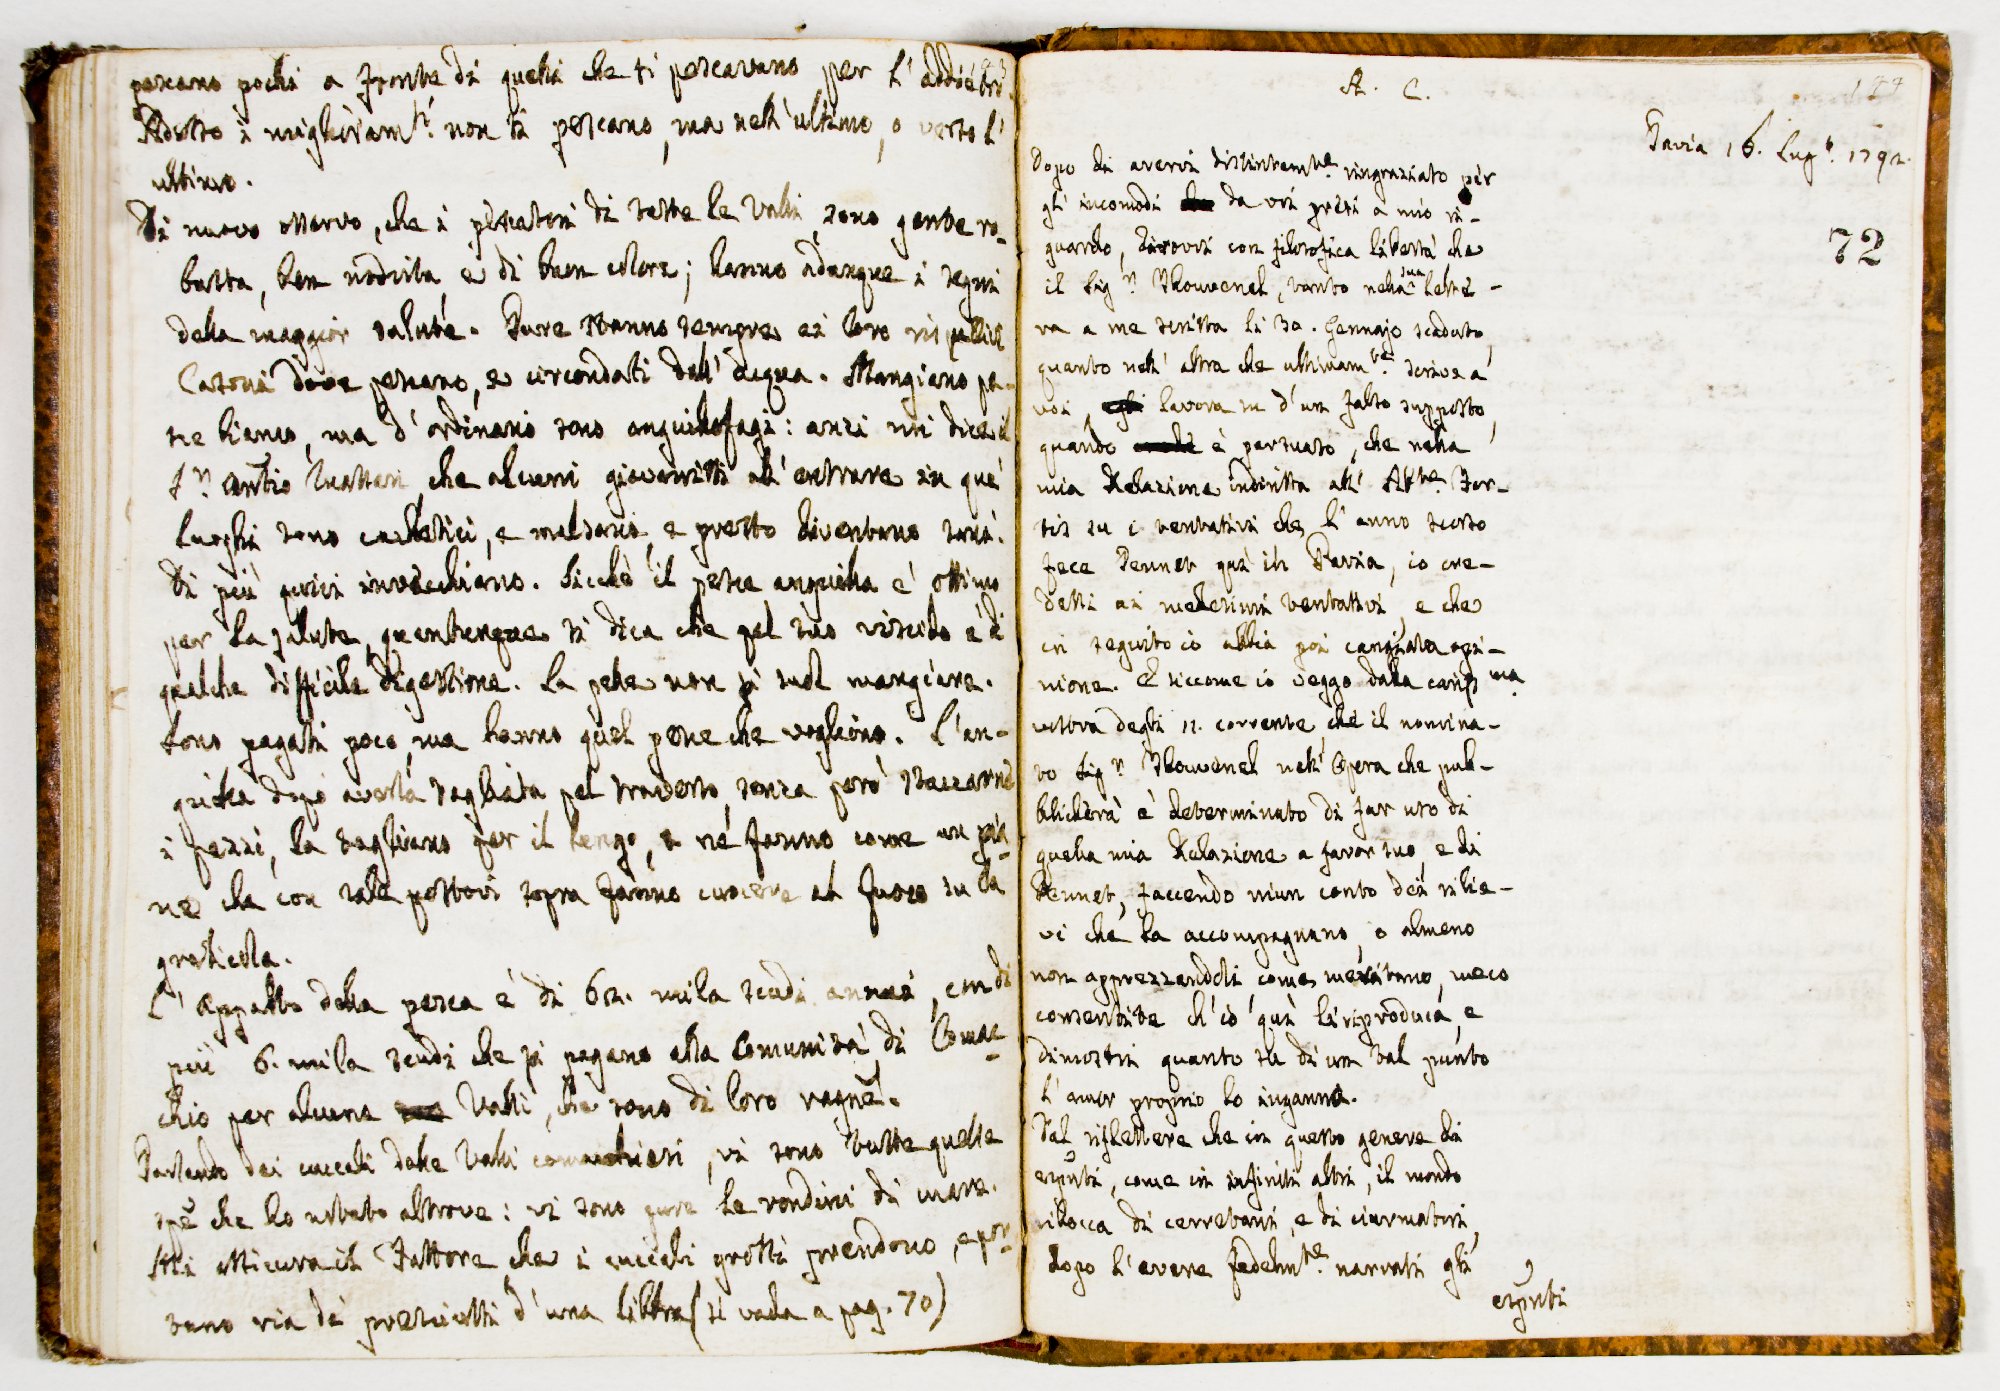 pescano pochi a fronte di quelli che si pescavano per l'addietro.
Adesso i miglioram.ti non si pescano, ma nell'ultimo, o verso l'
ultimo.
Di nuovo osservo, che i pescatori di tutte le Valli sono gente ro-
busta, ben nodrita e di buon colore; hanno adunque i segni
della maggior salute. Pure stanno sempre ei loro rispettivi
Casoni dove pescano, e circondati dall'acqua. Mangiano pe-
sce bianco, ma d'ordinario sono anguillofagi: anzi mi dice il
S.r Antio che alcuni giovinetti all'entrare in que'
luoghi sono cachetici, e malsani, e presto diventano sani.
Di più quivi invecchiano. Sicchè il pesce anguilla è ottimo
per la salute, quantunque si dica che pel suo viscido è di
qualche difficile digestione. La pelle non si suol mangiare.
Sono pagati poco, ma hanno quel pesce che vogliono. L'an-
guilla dopo averla tagliata pel traverso, senza però staccarne
i pezzi, la tagliano per il lungo, e ne fanno come un
ne che con sale postovi sopra fanno cuocere al fuoco su la
graticola.
L'Appalto della pesca è di 62. mila scudi annui, con di
più 6. mila scudi che si pagano alla Comunità di Comac-
chio per alcune Valli, che sono di loro ragne.
Parlando dei uccelli delle Valli comachiesi, vi sono tutte quelle
spe che ho notato altrove: vi sono pure le rondini di mare.
Mi assicura il Fattore che i uccelli grossi prendono, e por-
tano via de' pesciotti d'una libbra (si vada a pag. 70)
A. C.
144
Pavia 16. Lug.o 1792.
72
Dopo di avervi distintam.te ringraziato per
gli incomodi da voi presi a mio ri-
guardo, dirovvi con filosofica libertà che
il Sig.r Thouvenel, tanto nella sua lette-
ra a me scritta li 30. Gennajo scaduto,
quanto nell'altra che ultimam.te scrive a
voi, lavora su d'un falso supposto,
quando è persuaso, che nella
mia Relazione indiritta all'Ab.te For-
tis su i tentativi che l'anno scorso
fece Pennet quì in Pavia, io cre-
dessi ai medesimi tentativi, e che
in seguito io abbia poi cangiata opi-
nione. E siccome io veggo dalla cariss ma
vostra degli 12. corrente, che il nomina-
to Sig.r Thouvenel nell'Opera che pub-
blicherà è determinato di far uso di
quella mia Relazione a favor suo, e di
Pennet, faccendo niun conto dei rilie-
vi che la accompagnano, o almeno
non apprezzandoli come meritano, meco
consentite ch'io quì li riproduca, e
dimostri quanto su di un tal punto
l'amor proprio lo inganna.
Dal riflettere che in questo genere di
espnti, come in infiniti altri, il mondo
ribocca di cerretani, e di ciurmatori,
dopo l'avere fedelm.te narrati gli
espnti